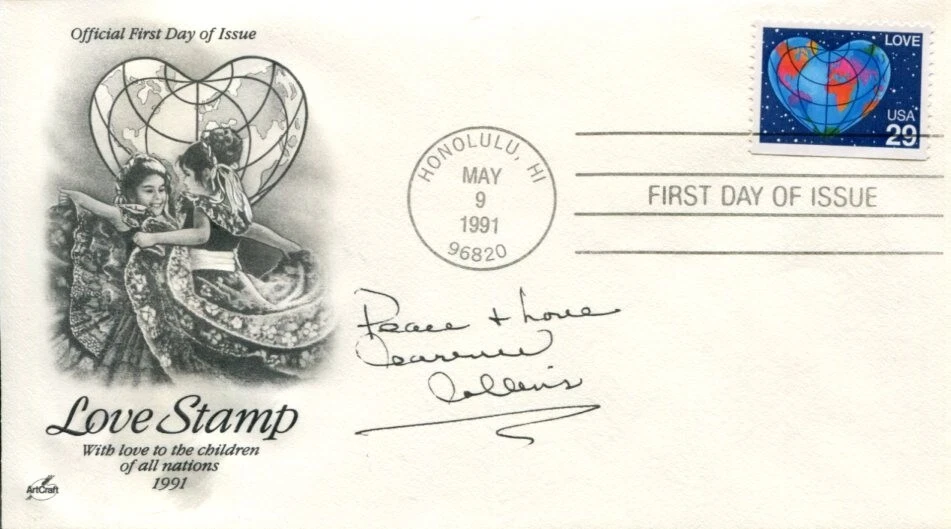 Official First Day of Issue
LOVE
USA
29
HONOLULU, HI
MAY
9
1991
96820
FIRST DAY OF ISSUE
Peace + Love
Clarence
Collins
Love Stamp
With love to the children
of all nations
1991
ArtCraft